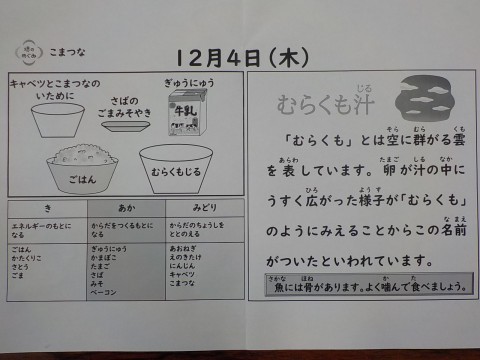 堺の
めぐみ
こまつな
12月4日(木)
キャベツとこまつなの
いために
ぎゅうにゅう
さばの
ごまみそやき
牛乳
ごはん
むらくもじる
き
あか
みどり
エネルギーのもとに
なる
からだをつくるもとに
なる
からだのちょうしを
ととのえる
ごはん
かたくりこ
さとう
ごま
ぎゅうにゅう
かまぼこ
たまご
さば
みそ
ベーコン
あおねぎ
えのきたけ
にんじん
キャベツ
こまつな
じる
むらくも汁
そら むら くも
「むらくも」とは空に群がる雲
あらわ たまご しる なか
を表しています。卵が汁の中に
ひろ ようす
うすく広がった様子が「むらくも」
なまえ
のようにみえることからこの名前
がついたといわれています。
さかな ほね か た
魚には骨があります。よく噛んで食べましょう。